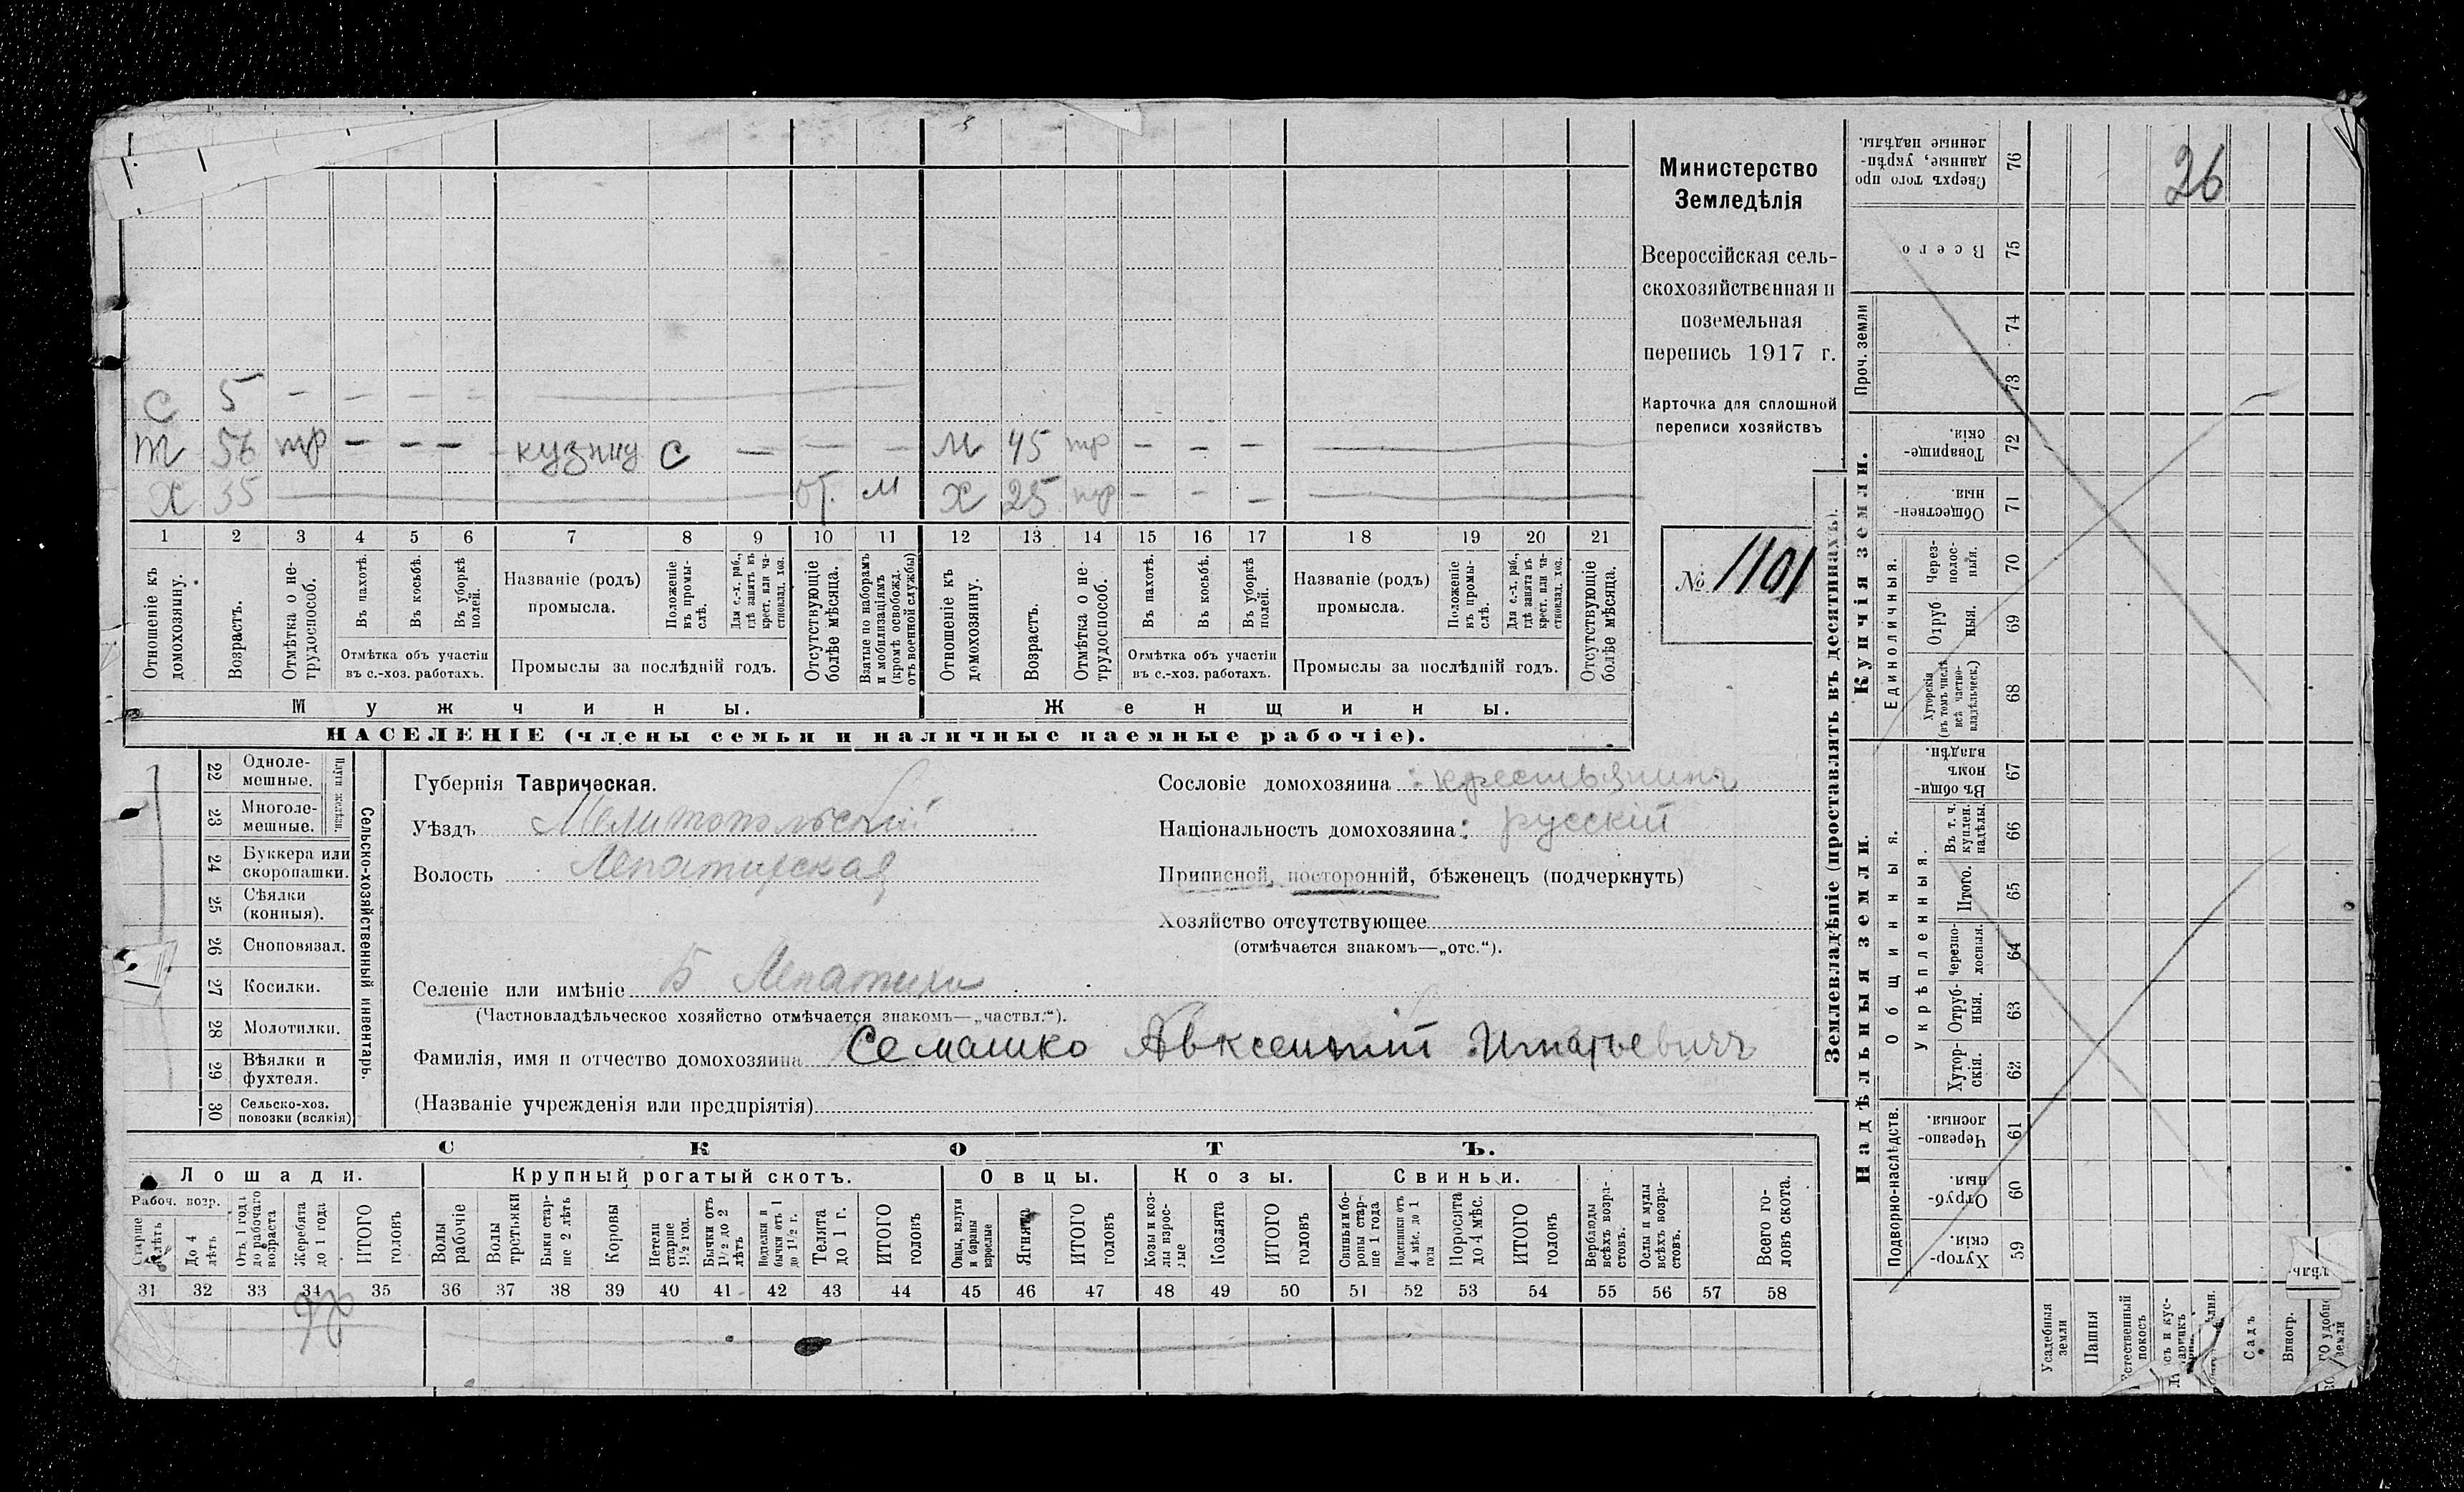 26
Министерство
Земледѣлія
Всероссійская сель-
скохозяйственная и
поземельная
перепись 1917 г.
Карточка для сплошной
переписи хозяйствъ
№ 1101
С 5 — — — —
Т 56 тр — — — кузнец С — — — М 45 тр — — —
Х 35 от. м Х 25 тр — — —
1 2 3 4 5 6 7 8 9 10 11 12 13 14 15 16 17 18 19 20 21
Отношеніе къ домохозяину.
Возрастъ.
Отмѣтка о не-трудоспособ.
Въ пахотѣ.
Въ косьбѣ.
Въ уборкѣ полей.
Отмѣтка объ участіи
въ с.-хоз. работахъ.
Названіе (родъ)
промысла.
Положеніе въ промы-слѣ.
Для с.-х. раб., гдѣ занятъ въ крест. или ча-стновлад. хоз.
Промыслы за послѣдній годъ.
Отсутствующіе болѣе мѣсяца.
Взятые по наборамъ и мобилизаціямъ (кромѣ освобожд. отъ военной службы)
Отношеніе къ домохозяину.
Возрастъ.
Отмѣтка о не-трудоспособ.
Въ пахотѣ.
Въ косьбѣ.
Въ уборкѣ полей.
Отмѣтка объ участіи
въ с.-хоз. работахъ.
Названіе (родъ)
промысла.
Положеніе въ промы-слѣ.
Для с.-х. раб., гдѣ занята въ крест. или ча-стновлад. хоз.
Промыслы за послѣдній годъ.
Отсутствующіе болѣе мѣсяца.
Мужчины. Женщины.
НАСЕЛЕНІЕ (члены семьи и наличные наемные рабочіе).
22 Одноле-мешные.
23 Многоле-мешные.
Плуги желѣзн.
24 Буккера или скоропашки.
25 Сѣялки (конныя).
26 Сноповязал.
27 Косилки.
28 Молотилки.
29 Вѣялки и фухтеля.
30 Сельско-хоз. повозки (всякія)
Сельско-хозяйственный инвентарь.
Губернія Таврическая.
Уѣздъ Мелитопольскій
Волость Лепатихская
Селеніе или имѣніе Б Лепатиха
(Частновладѣльческое хозяйство отмѣчается знакомъ—„частвл.“).
Фамилія, имя и отчество домохозяина Семашко Авксентий Игнатьевичъ
(Названіе учрежденія или предпріятія)
Сословіе домохозяина : крестьянинъ
Національность домохозяина: русскій
Приписной, посторонній, бѣженецъ (подчеркнуть)
Хозяйство отсутствующее
(отмѣчается знакомъ—„отс.“).
СКОТЪ.
Лошади. Крупный рогатый скотъ. Овцы. Козы. Свиньи.
Рабоч. возр.
До 4 лѣтъ
Отъ 1 года до рабочаго возраста
Жеребята до 1 года
ИТОГО головъ
Волы рабочіе
Волы третьяки
Быки стар-ше 2 лѣтъ
Коровы
Нетели старше 1½ год.
Бычки отъ 1½ до 2 лѣтъ
Подтелки и бычки отъ 1 до 1½ г.
Телята до 1 г.
ИТОГО головъ
Овцы, валухи и бараны взрослые
Ягнята
ИТОГО головъ
Козы и коз-лы взрос-лые
Козлята
ИТОГО головъ
Свиньи и бо-ровы стар-ше 1 года
Подсвинки отъ 4 мѣс. до 1 года
Поросята до 4 мѣс.
ИТОГО головъ
Верблюды всѣхъ возра-стовъ.
Ослы и мулы всѣхъ возра-стовъ.
Всего го-ловъ скота.
31 32 33 34 35 36 37 38 39 40 41 42 43 44 45 46 47 48 49 50 51 52 53 54 55 56 57 58
Землевладѣніе (проставлять въ десятинахъ).
Купчія земли.
Надѣльныя земли.
Сверхъ того про-данные, укрѣп-ленные надѣлы. 76
Всего 75
Проч. земли 74 73
Товарище-скія. 72
Обществен-ныя. 71
Единоличныя.
Черезполос-ныя. 70
Отруб ныя. 69
Хуторскія (въ томъ числѣ всѣ частно-владѣльческ.) 68
Въ общи-номъ владѣн. 67
Общинныя.
Укрѣпленныя.
Въ т. ч. куплен. надѣлы. 66
Итого. 65
Черезпо-лосныя. 64
Отруб-ныя. 63
Хутор-скія. 62
Подворно-наслѣдств.
Черезпо-лосныя. 61
Отруб-ныя. 60
Хутор-скія. 59
Усадебныя земли
Пашня
Естественный покосъ
Садъ
Виногр.